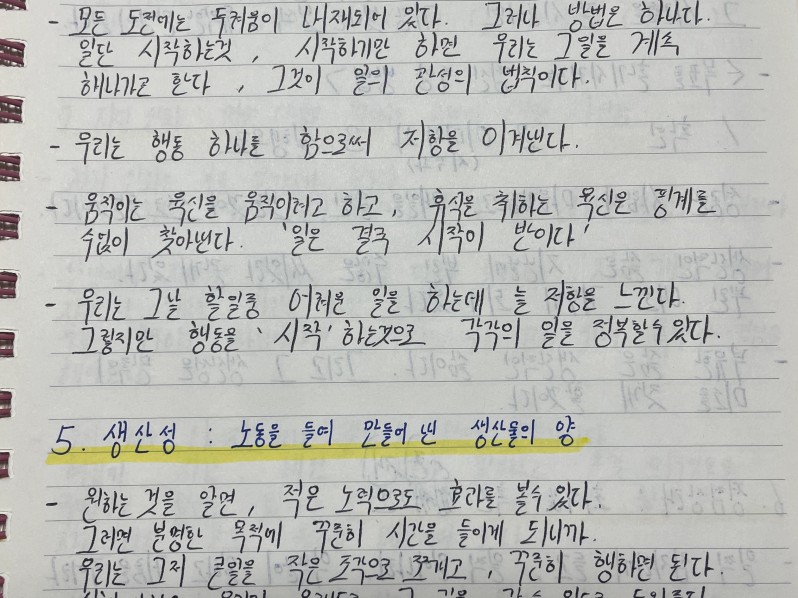 - 모든 도전에는 두려움이 내재되어 있다. 그러나 방법은 하나다.
일단 시작하는것, 시작하기만 하면 우리는 그일을 계속
해나가고 한다, 그것이 일의 관성의 법칙이다.
- 우리는 행동 하나를 함으로써 저항을 이겨낸다.
- 움직이는 육신을 움직이려고 하고, 휴식을 취하는 육신은 핑계를
수없이 찾아낸다. '일은 결국 시작이 반이다'
- 우리는 그날 할일중 어려운 일을 하는데 늘 저항을 느낀다.
그렇지만 행동을 '시작' 하는것으로 각각의 일을 정복할수 있다.
5. 생산성 : 노동을 들여 만들어 낸 생산물의 양
- 원하는 것을 알면, 적은 노력으로도 효과를 볼수 있다.
그러면 분명한 목적에 꾸준히 시간을 들이게 되니까.
우리는 그저 큰일을 작은 조각으로 쪼개고, 꾸준히 행하면 된다.